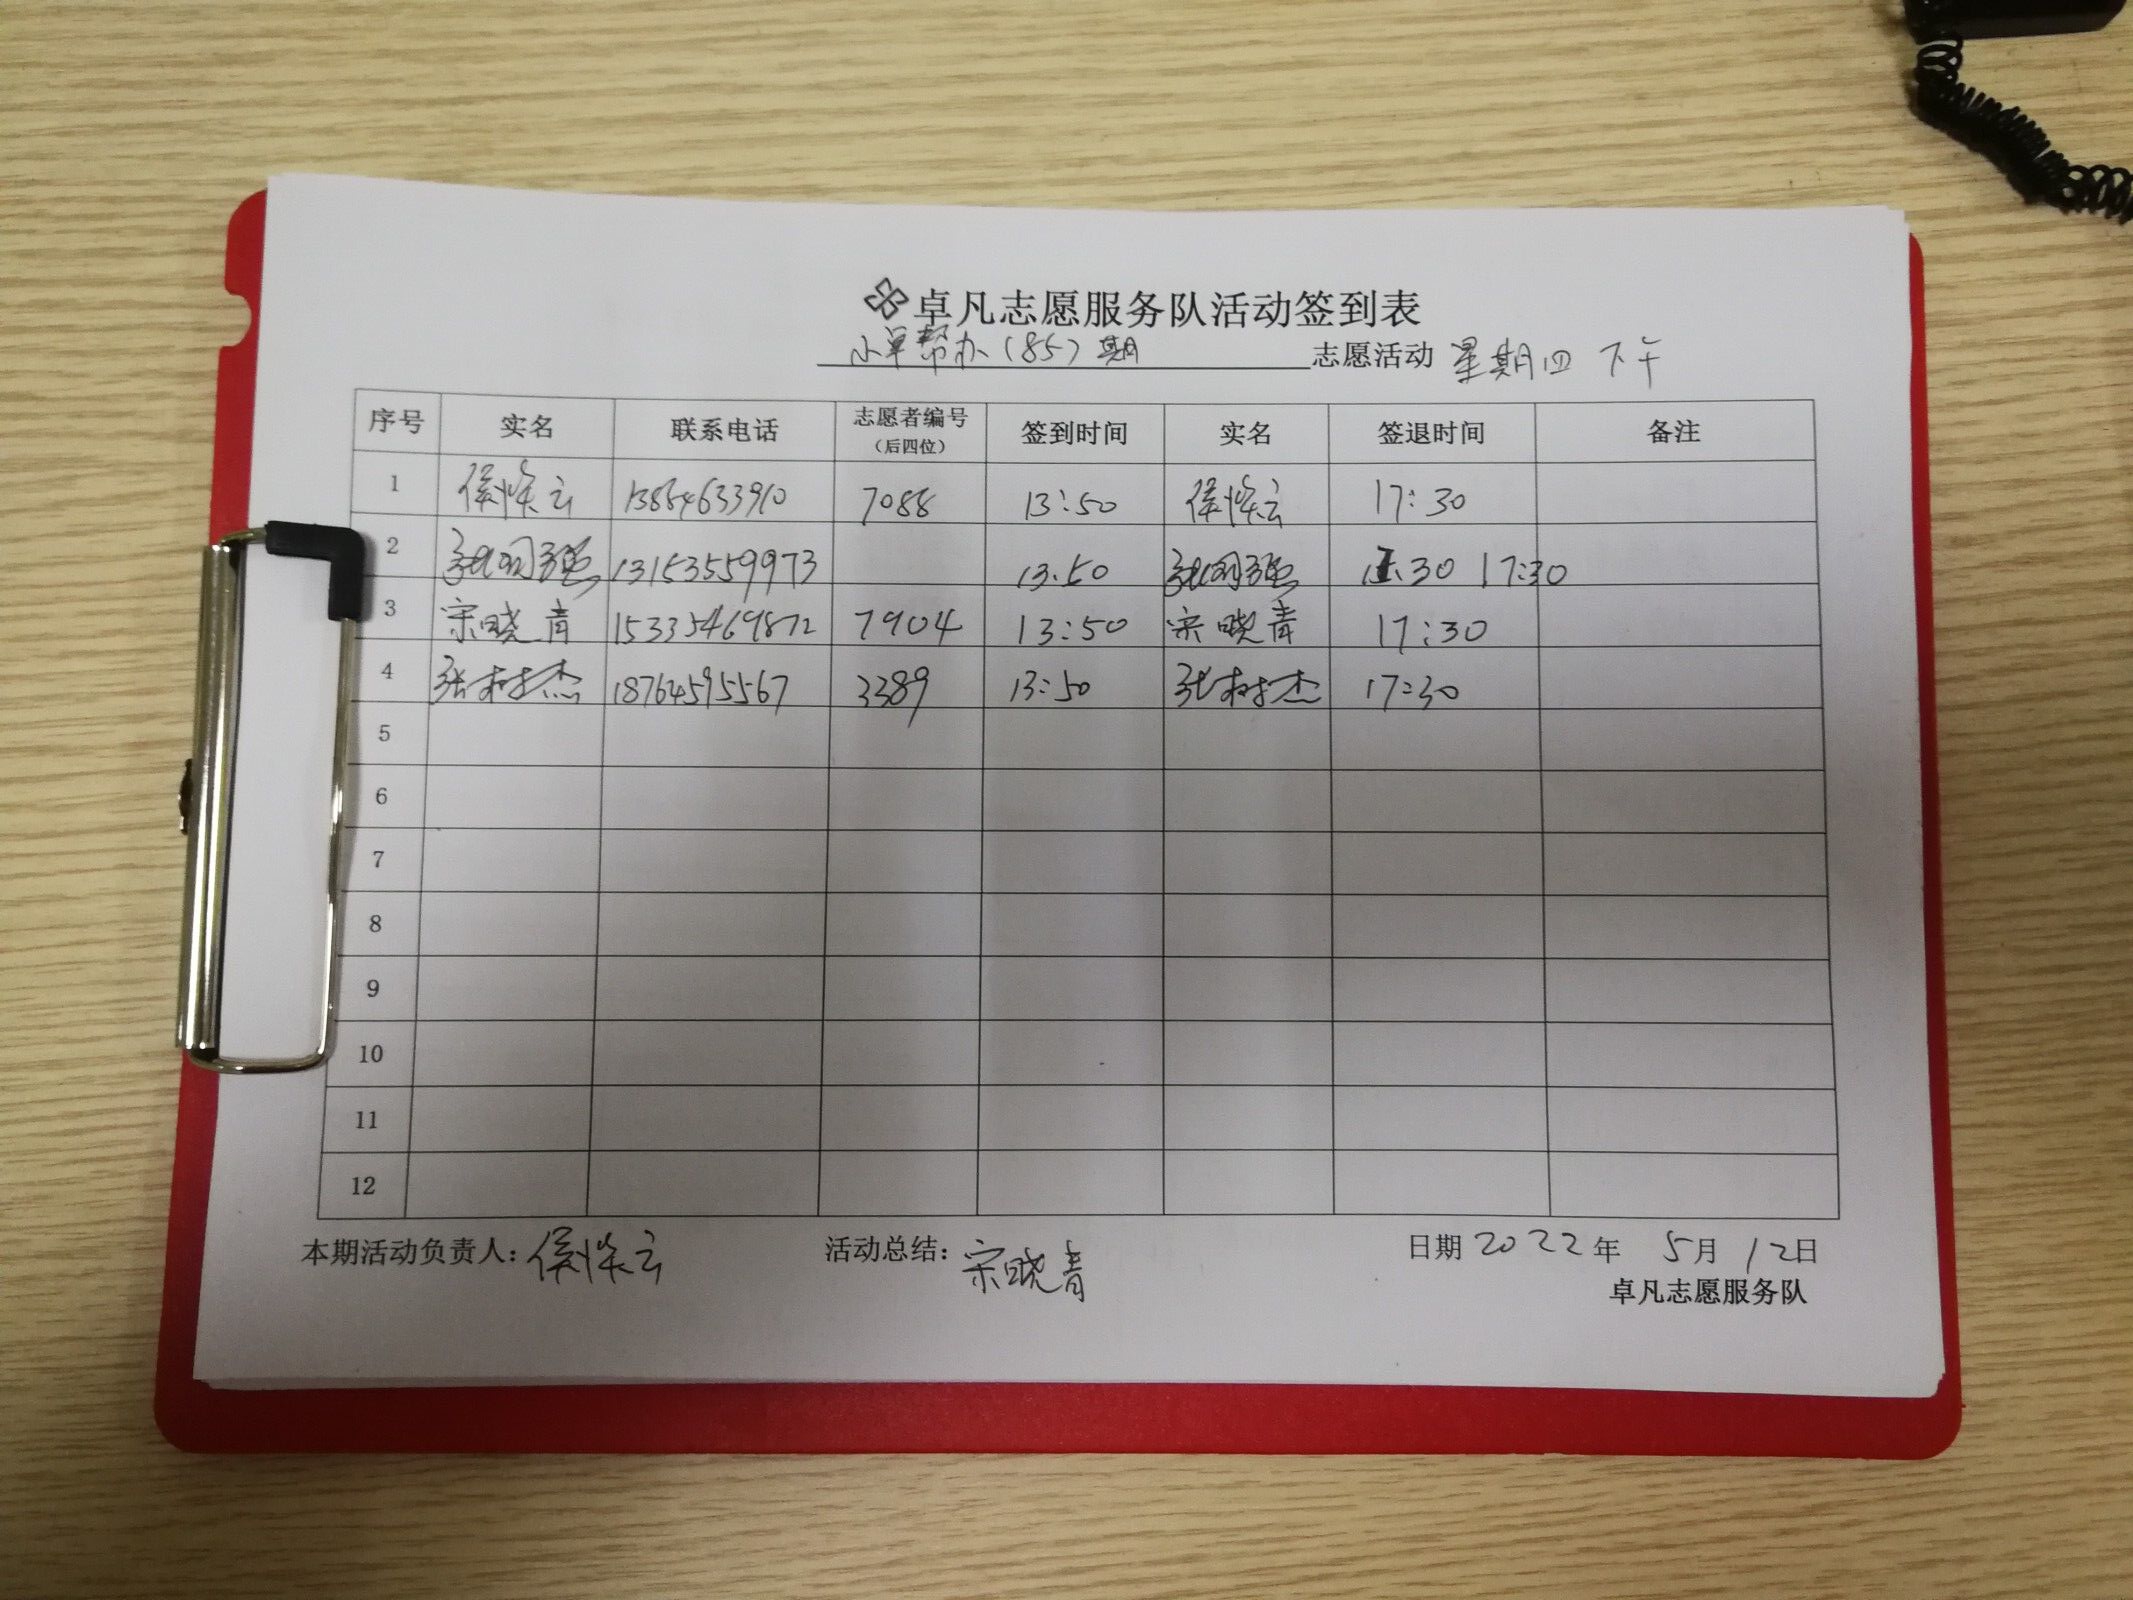 卓凡志愿服务队活动签到表
小草帮办(85)期 志愿活动 星期四 下午
序号 实名 联系电话 志愿者编号(后四位) 签到时间 实名 签退时间 备注
1 侯焕云 13854633910 7088 13:50 侯焕云 17:30
2 13153559973 13:50 17:30
3 宋晓青 15335469872 7904 13:50 宋晓青 17:30
4 张树杰 18764595567 3389 13:50 张树杰 17:30
5
6
7
8
9
10
11
12
本期活动负责人: 侯焕云 活动总结: 宋晓青 日期 2022年 5月 12日
卓凡志愿服务队